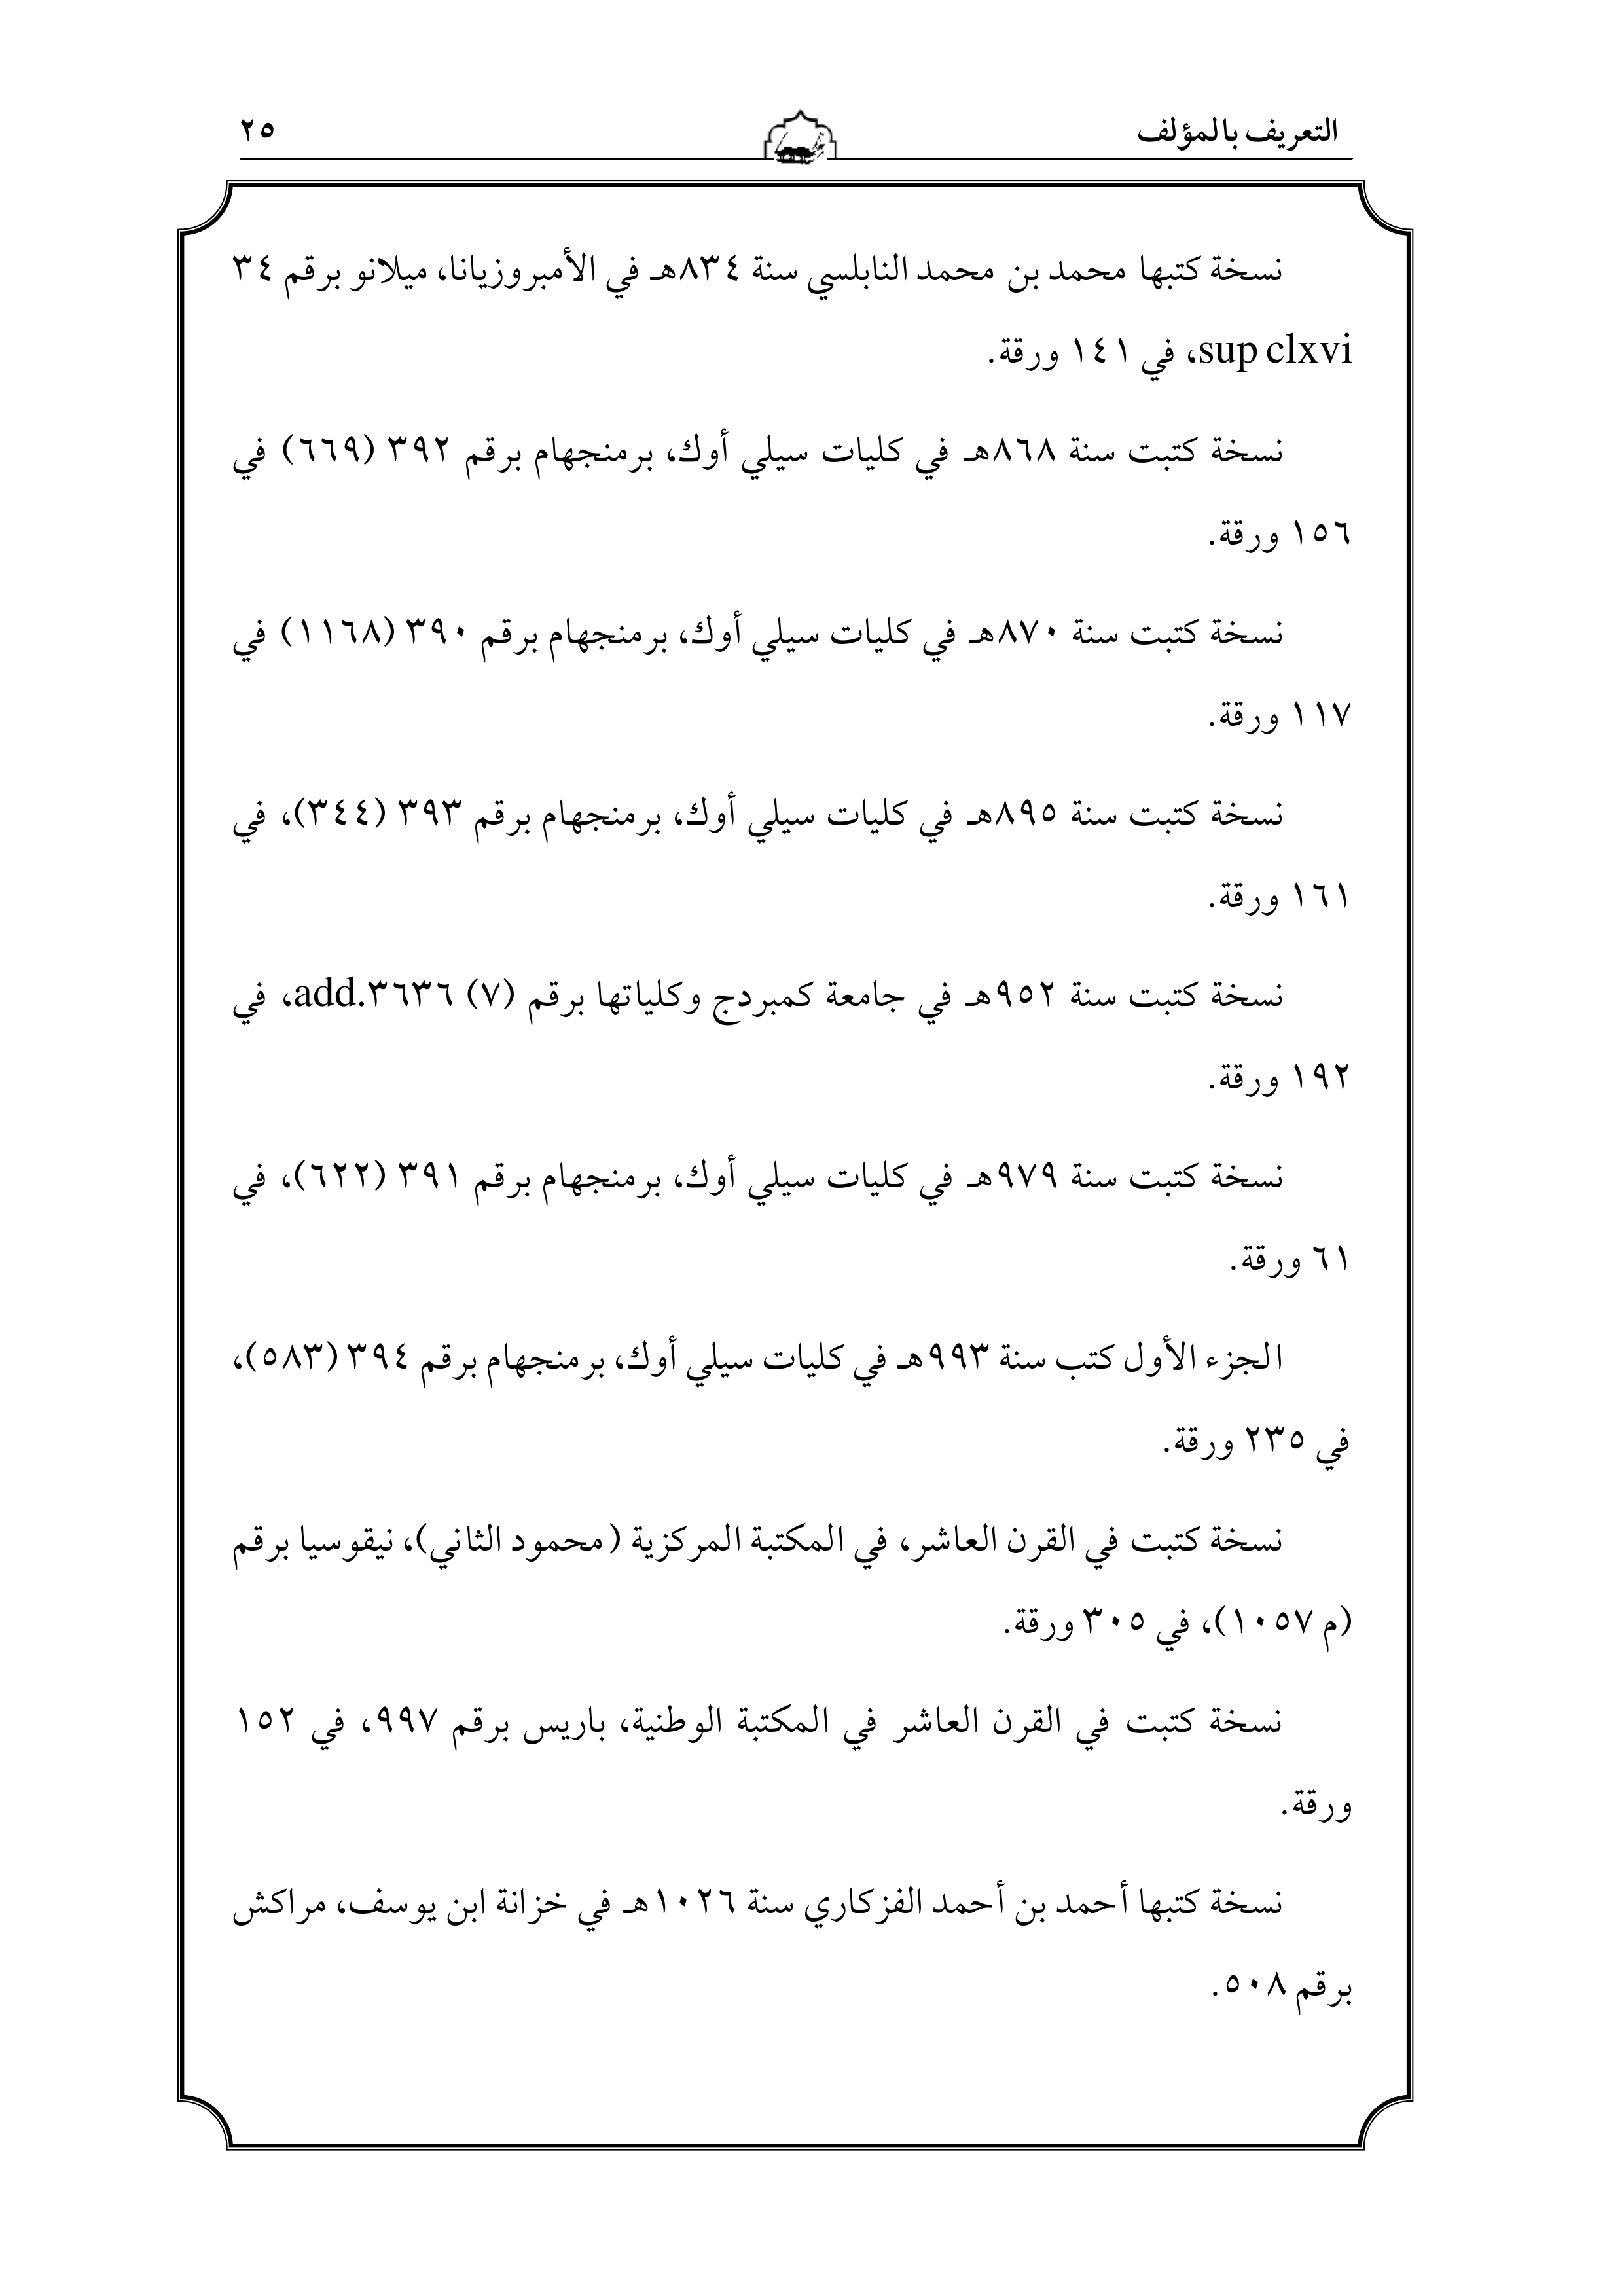 التعريف بالمؤلف
٢٥
نسخة كتبها محمد بن محمد النابلسي سنة ٨٣٤هـ في الأمبروزيانا، ميلانو برقم ٣٤
sup clxvi، في ١٤١ ورقة.
نسخة كتبت سنة ٨٦٨هـ في كليات سيلي أوك، برمنجهام برقم ٣٩٢ (٦٦٩) في
١٥٦ ورقة.
نسخة كتبت سنة ٨٧٠هـ في كليات سيلي أوك، برمنجهام برقم ٣٩٠ (١١٦٨) في
١١٧ ورقة.
نسخة كتبت سنة ٨٩٥هـ في كليات سيلي أوك، برمنجهام برقم ٣٩٣ (٣٤٤)، في
١٦١ ورقة.
نسخة كتبت سنة ٩٥٢هـ في جامعة كمبردج وكلياتها برقم (٧) add.٣٦٣٦، في
١٩٢ ورقة.
نسخة كتبت سنة ٩٧٩هـ في كليات سيلي أوك، برمنجهام برقم ٣٩١ (٦٢٢)، في
٦١ ورقة.
الجزء الأول كتب سنة ٩٩٣هـ في كليات سيلي أوك، برمنجهام برقم ٣٩٤ (٥٨٣)،
في ٢٣٥ ورقة.
نسخة كتبت في القرن العاشر، في المكتبة المركزية (محمود الثاني)، نيقوسيا برقم
(م ١٠٥٧)، في ٣٠٥ ورقة.
نسخة كتبت في القرن العاشر في المكتبة الوطنية، باريس برقم ٩٩٧، في ١٥٢
ورقة.
نسخة كتبها أحمد بن أحمد الفزكاري سنة ١٠٢٦هـ في خزانة ابن يوسف، مراكش
برقم ٥٠٨.